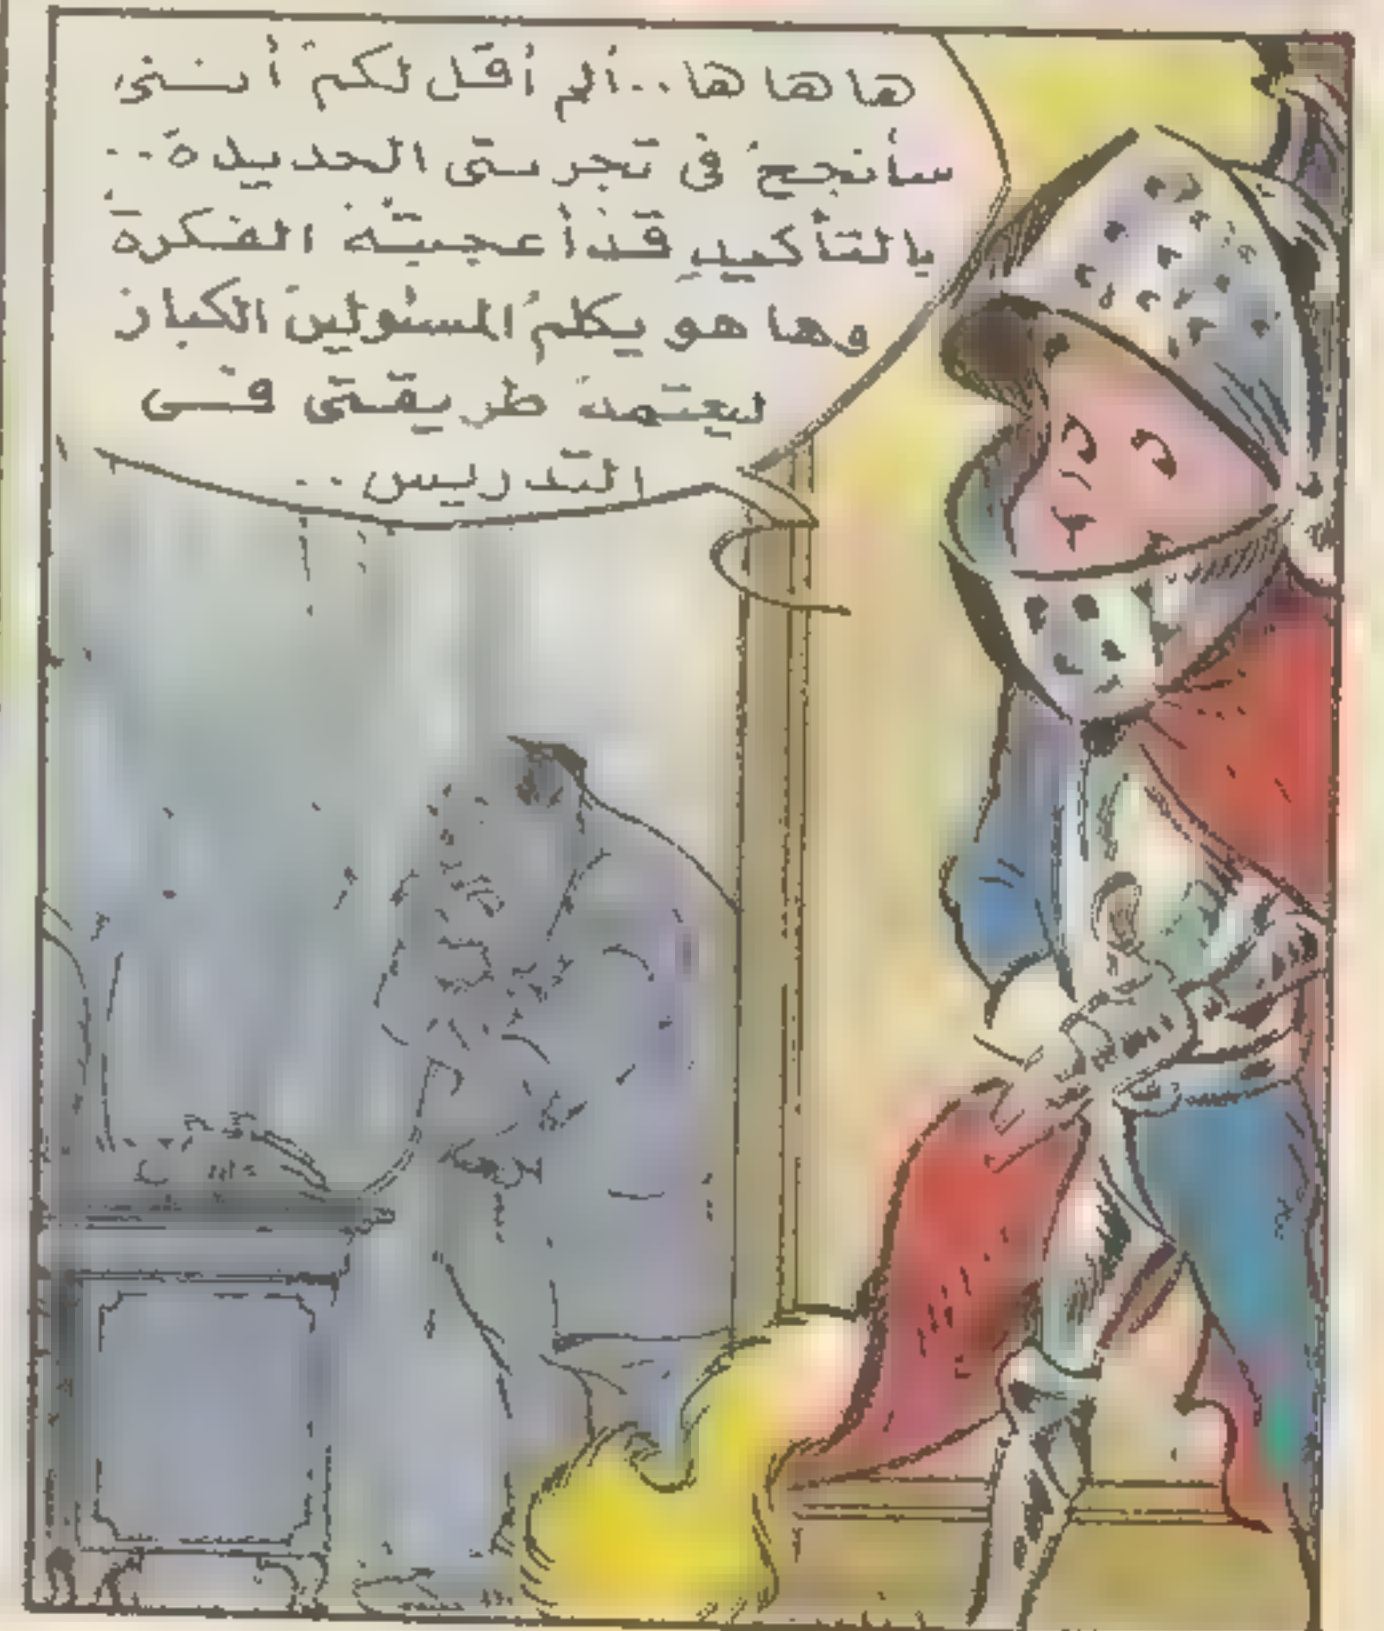 ها ها ها.. ألم أقل لكم أننى
سأنجح فى تجربتى الجديدة..
بالتأكيد قد أعجبته الفكرة
وها هو يكلم المسئولين الكبار
ليعتمد طريقتى فى
التدريس..